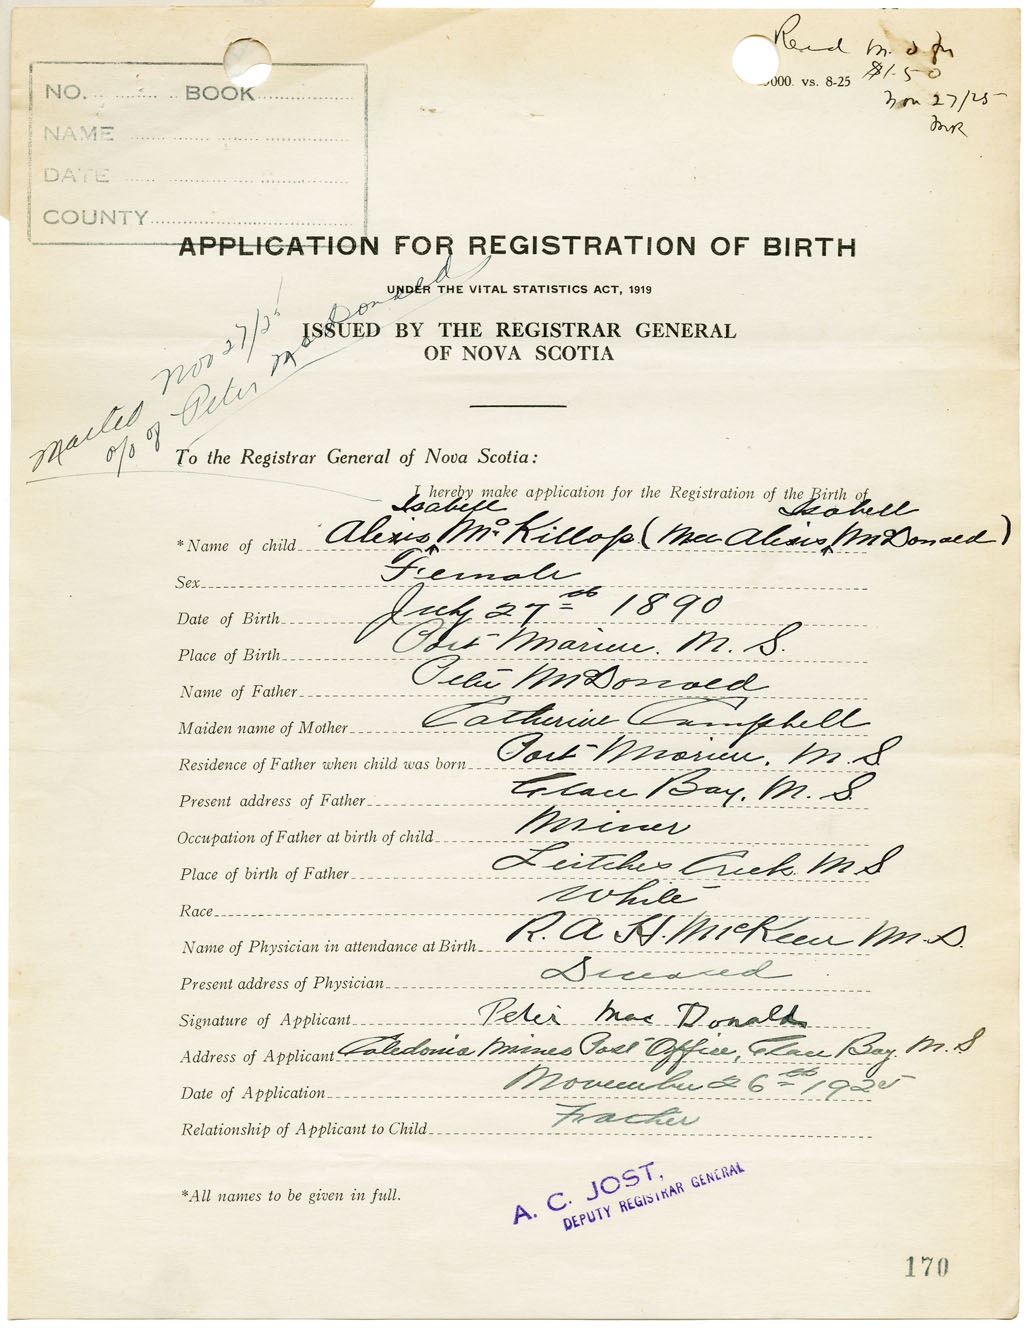 Recd M. O for
$1.50
Nov 27/25
MR
000. vs. 8-25
NO. BOOK
NAME
DATE
COUNTY
APPLICATION FOR REGISTRATION OF BIRTH
UNDER THE VITAL STATISTICS ACT, 1919
ISSUED BY THE REGISTRAR GENERAL
OF NOVA SCOTIA
Mailed Nov 27/25
o/o of Peter McDonald
To the Registrar General of Nova Scotia:
I hereby make application for the Registration of the Birth of
Isabell Isabell
*Name of child Alexis McKillop (nee Alexis McDonald)
Sex Female
Date of Birth July 27th 1890
Place of Birth Port Morien. N. S.
Name of Father Peter McDonald
Maiden name of Mother Catherine Campbell
Residence of Father when child was born Port Morien, N. S
Present address of Father Glace Bay, N. S.
Occupation of Father at birth of child Miner
Place of birth of Father Leitches Creek N S
Race White
Name of Physician in attendance at Birth R. A. H. McKeen M. D.
Present address of Physician Deceased
Signature of Applicant Peter Mac Donald
Address of Applicant Caledonia Mines Post Office, Glace Bay. N. S
Date of Application November 26th 1925
Relationship of Applicant to Child Father
*All names to be given in full.
A. C. JOST,
DEPUTY REGISTRAR GENERAL
170